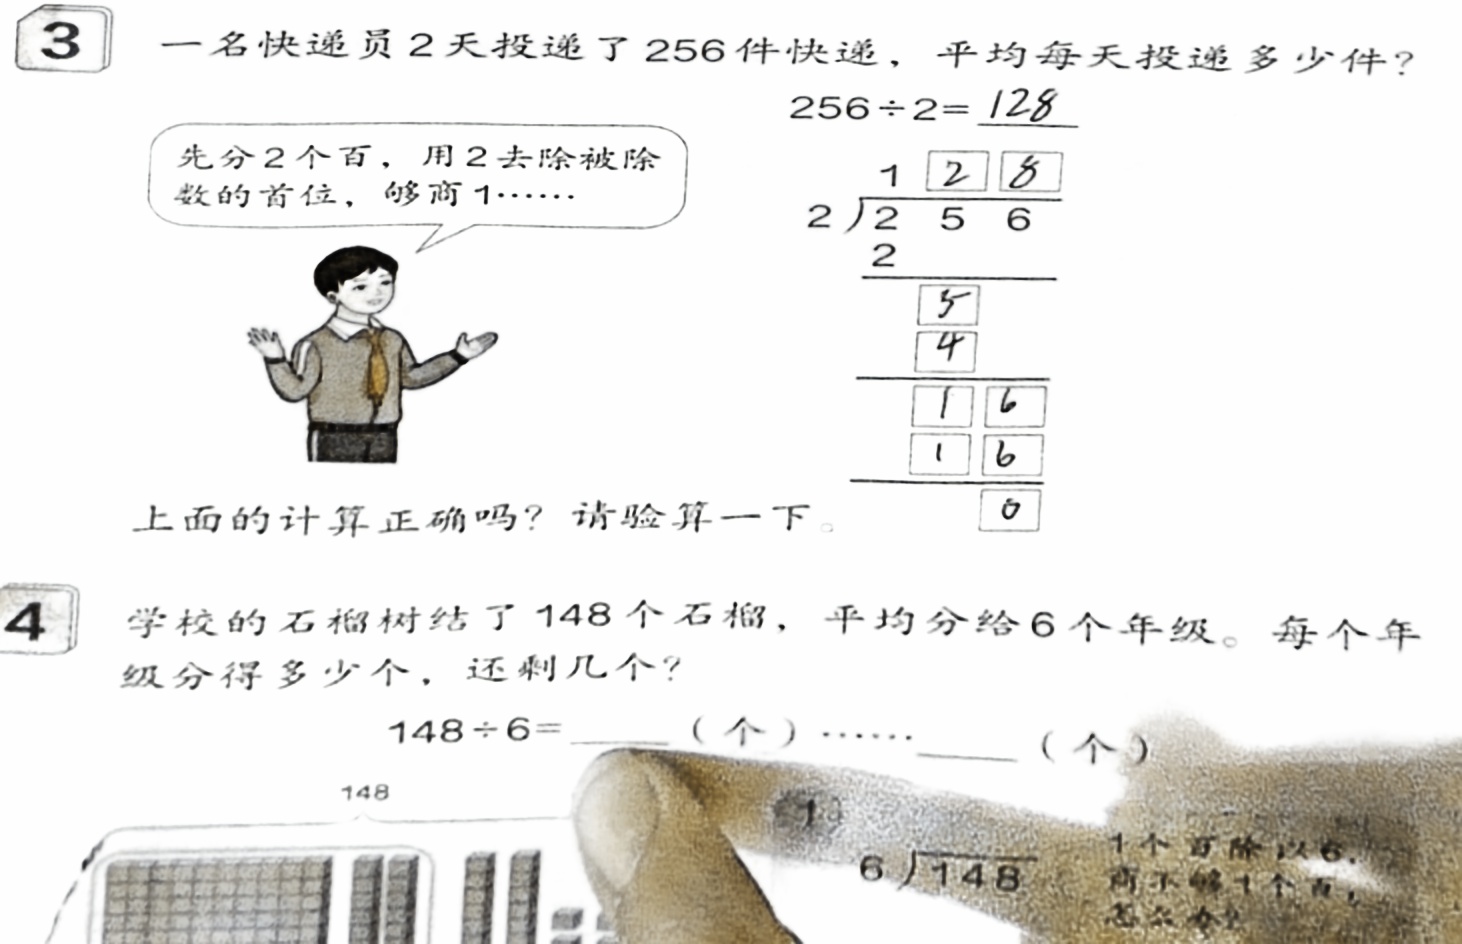 3 一名快递员2天投递了256件快递，平均每天投递多少件？
256÷2=128
先分2个百，用2去除被除
数的首位，够商1……
1 2 8
2 2 5 6
2
5
4
1 6
1 6
0
上面的计算正确吗？请验算一下。
4 学校的石榴树结了148个石榴，平均分给6个年级。每个年
级分得多少个，还剩几个？
148÷6=____（个）……____（个）
148
6 148
1个百除以6，
商不够1个百，
怎么办？